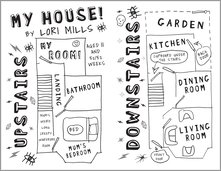 MY HOUSE!
BY LORI MILLS
UPSTAIRS
MY ROOM!
AGED 11
WEEKS
LANDING
BATHROOM
MUM'S
BED
MUM'S BEDROOM
DOWNSTAIRS
GARDEN
KITCHEN
CUPBOARD UNDER THE STAIRS
DINING ROOM
LIVING ROOM
FRONT DOOR